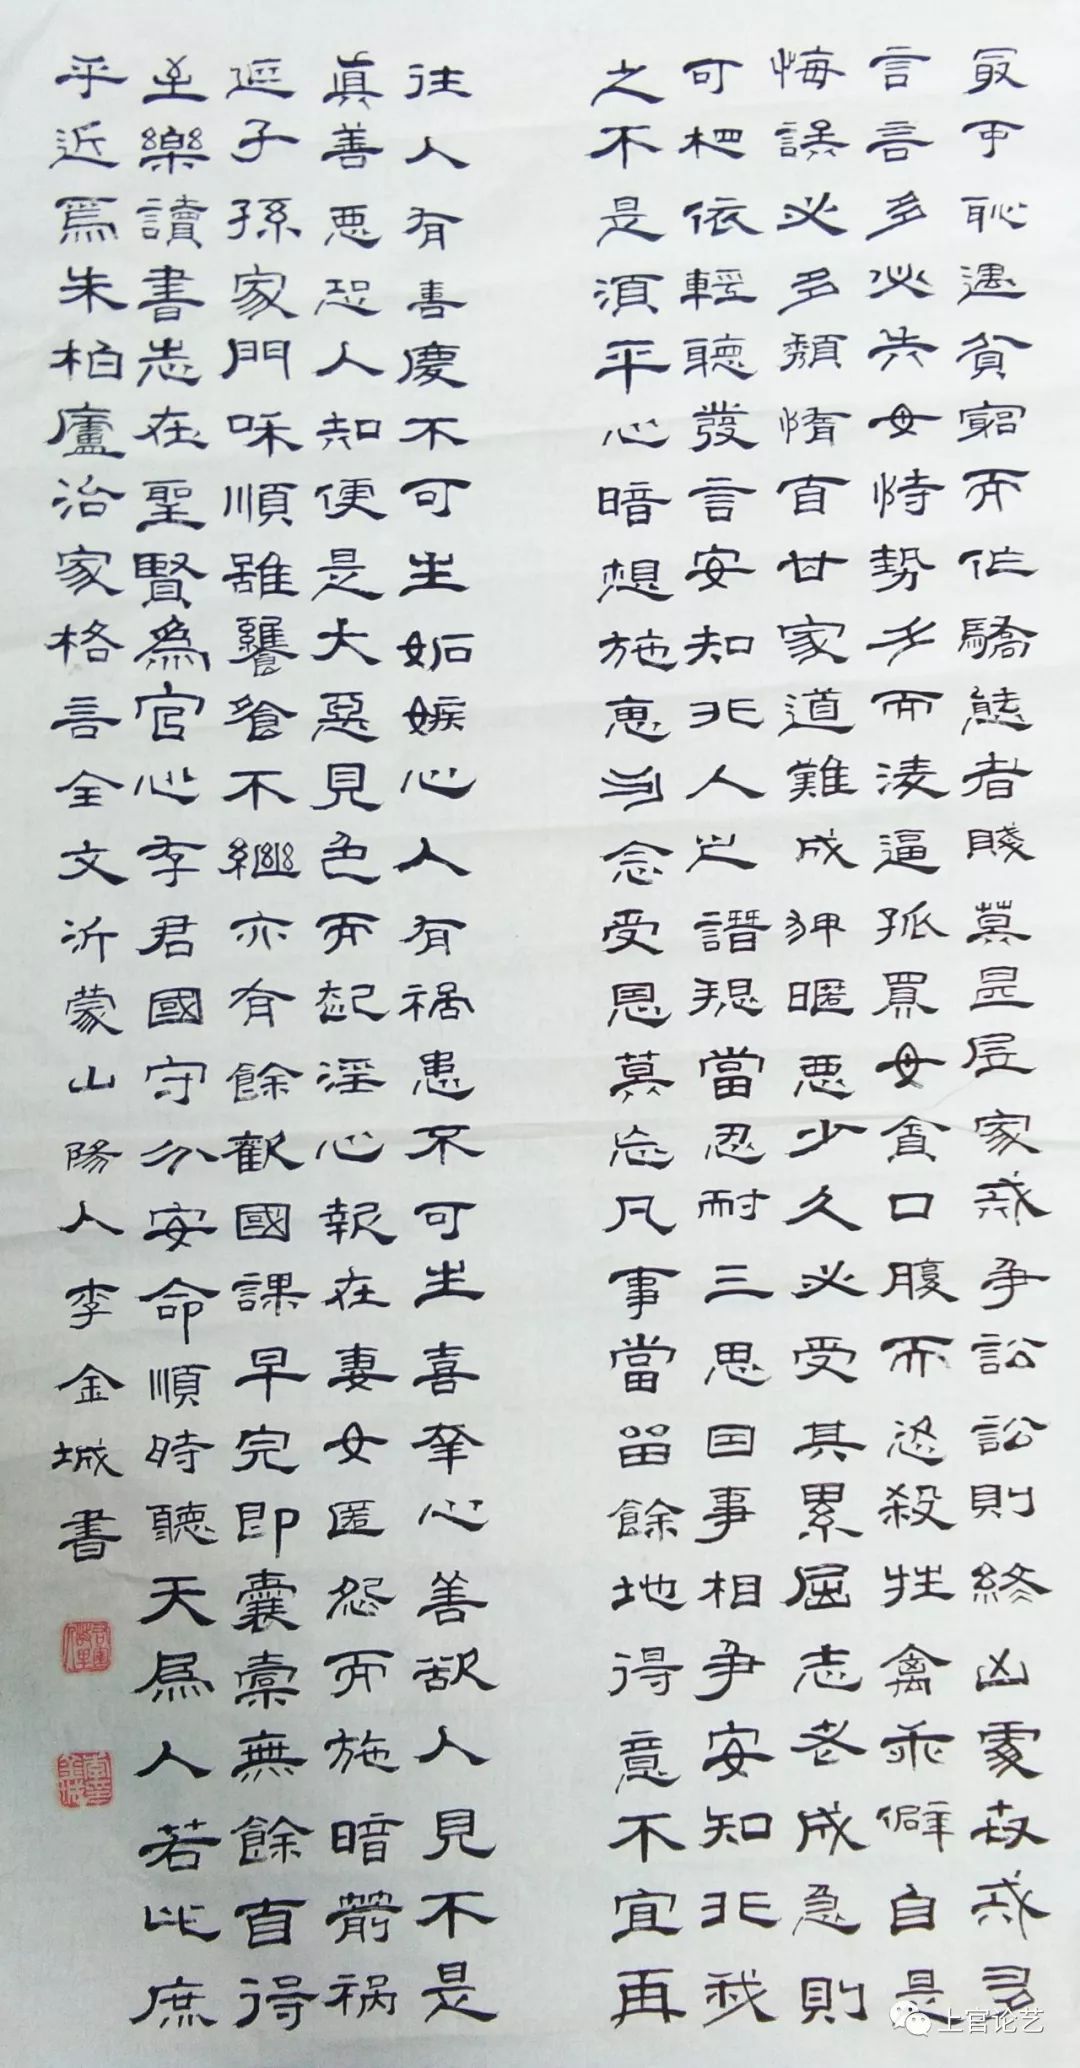 最可恥遇貧窮而作驕態者賤莫甚居家戒爭訟訟則終凶處世戒多
言言多必失毋恃勢力而凌逼孤寡毋貪口腹而恣殺牲禽乖僻自是
悔誤必多頹惰自甘家道難成狎暱惡少久必受其累屈志老成急則
可相依輕聽發言安知非人之譖愬當忍耐三思因事相爭安知非我
之不是須平心暗想施惠勿念受恩莫忘凡事當留餘地得意不宜再
往人有喜慶不可生妬嫉心人有禍患不可生喜幸心善欲人見不是
真善惡恐人知便是大惡見色而起淫心報在妻女匿怨而施暗箭禍
延子孫家門和順雖饔飧不繼亦有餘歡國課早完即囊橐無餘自得
至樂讀書志在聖賢為官心存君國守分安命順時聽天為人若此庶
乎近焉朱柏廬治家格言全文沂蒙山陽人李金城書
上官论艺